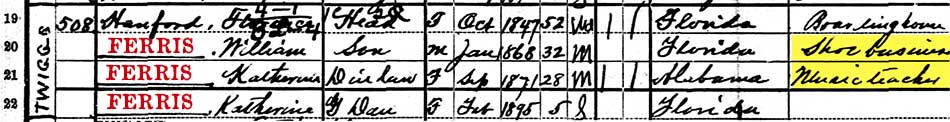 TWIGGS
19 508 Hanford, Head F Oct 1847 52 Wd Florida Boarding house
20 FERRIS, William Son M Jan 1868 32 M Florida Shoe business
21 FERRIS, Katherine D in law F Sep 1871 28 M Alabama Music teacher
22 FERRIS, Katherine G Dau F Feb 1895 5 S Florida